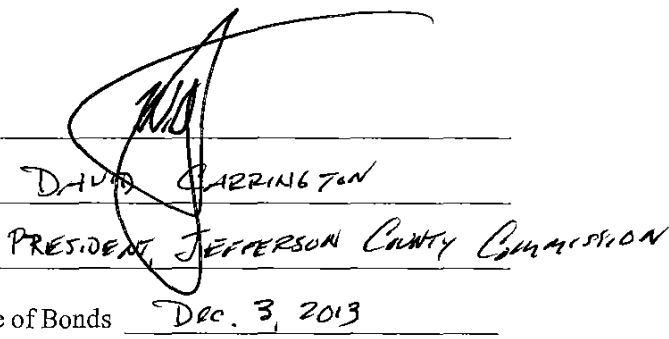 DAVID CARRINGTON
PRESIDENT, JEFFERSON COUNTY COMMISSION
e of Bonds Dec. 3, 2013